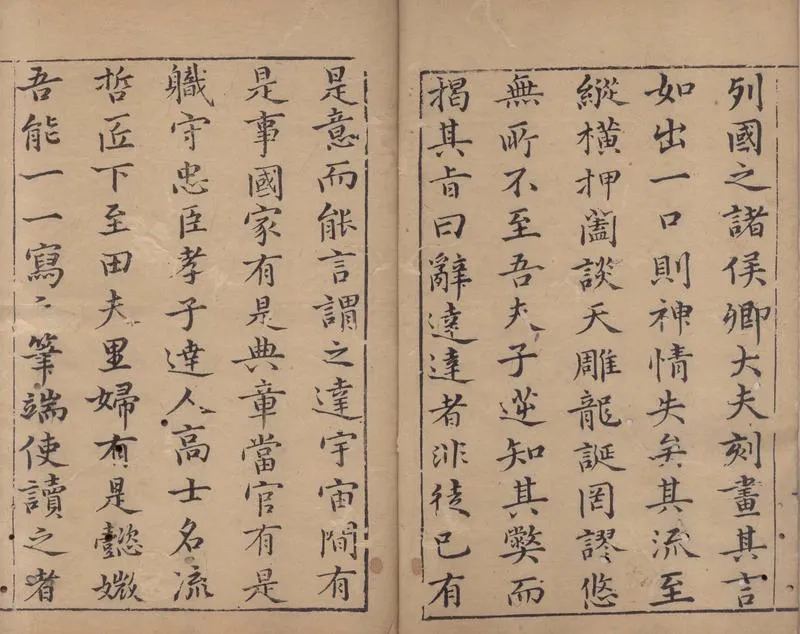 列國之諸侯卿大夫刻畫其言
如出一口則神情失矣其流至
縱橫押闔談天雕龍誕罔謬悠
無所不至吾夫子逆知其弊而
揭其旨曰辭達達者非徒已有
是意而能言謂之達宇宙間有
是事國家有是典章當官有是
職守忠臣孝子達人高士名流
哲匠下至田夫里婦有是懿媺
吾能一一寫之筆端使讀之者